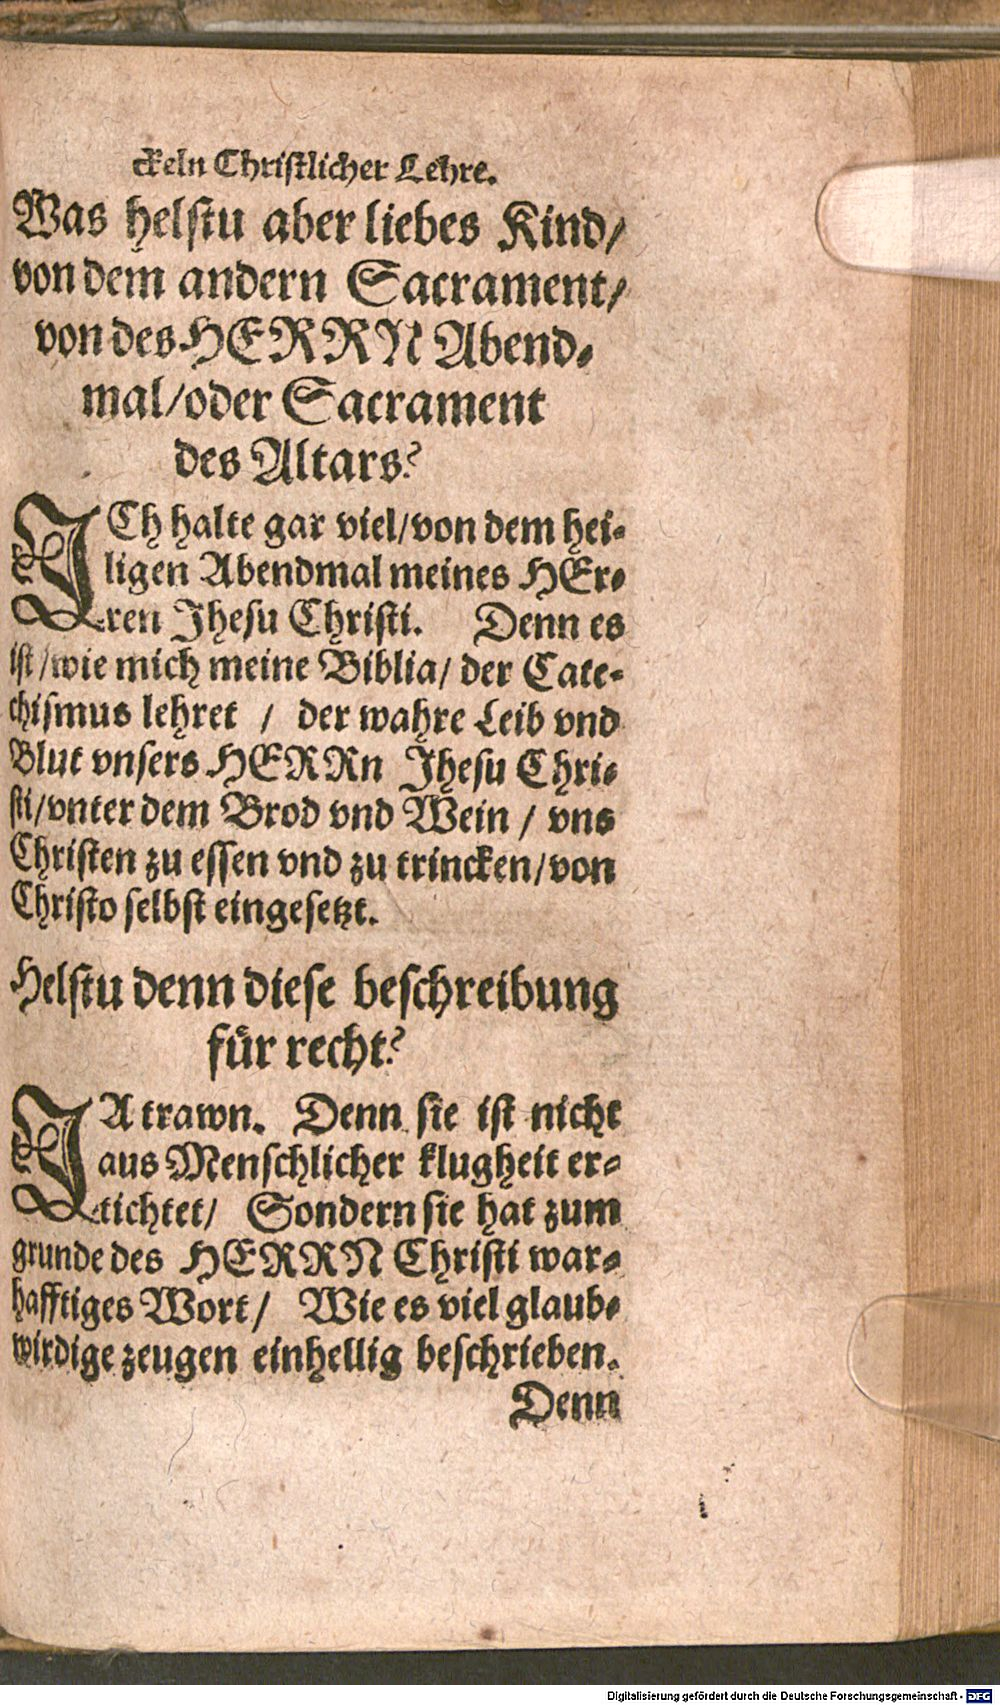 ckeln Christlicher Lehre.
Was helstu aber liebes Kind/
von dem andern Sacrament/
von des HERRN Abend⸗
mal/oder Sacrament
des Altars?
JCh halte gar viel/von dem hei⸗
ligen Abendmal meines HEr⸗
ren Jhesu Christi. Denn es
ist/wie mich meine Biblia/ der Cate⸗
chismus lehret / der wahre Leib vnd
Blut vnsers HERRn Jhesu Chri⸗
sti/vnter dem Brod vnd Wein / vns
Christen zu essen vnd zu trincken/von
Christo selbst eingesetzt.
Helstu denn diese beschreibung
für recht?
JA trawn. Denn sie ist nicht
aus Menschlicher klugheit er⸗
tichtet/ Sondern sie hat zum
grunde des HERRN Christi war⸗
hafftiges Wort/ Wie es viel glaub⸗
wirdige zeugen einhellig beschrieben.
Denn
Digitalisierung gefördert durch die Deutsche Forschungsgemeinschaft - DFG